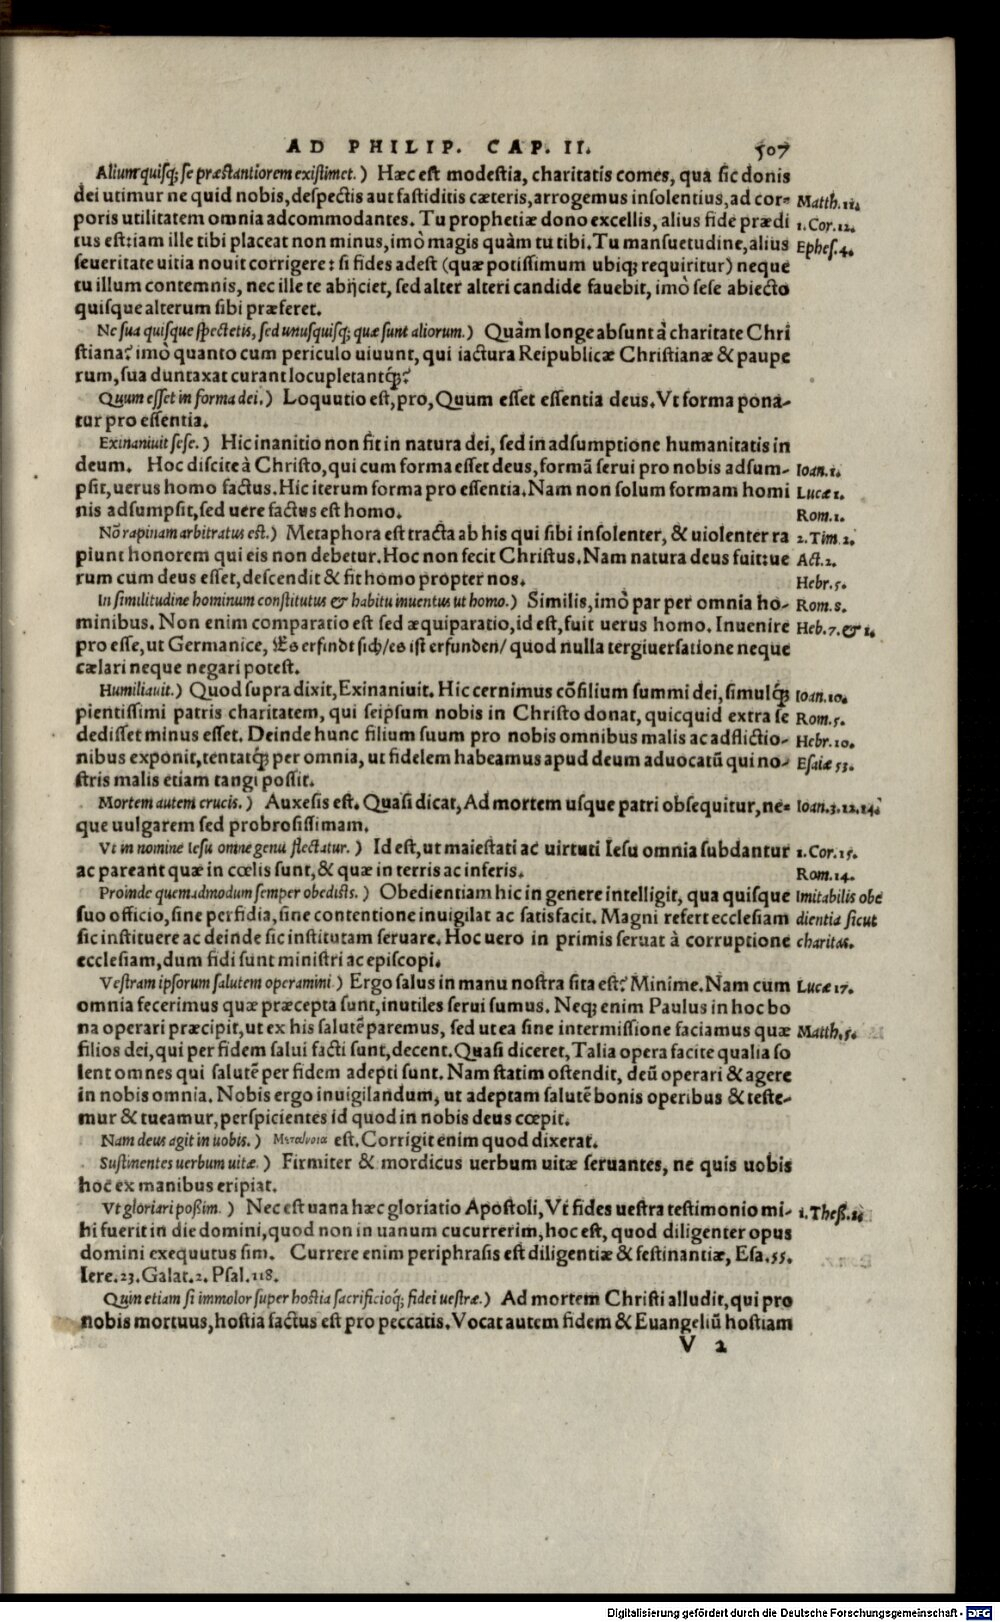 AD PHILIP. CAP. II. 507
Alium quisq; se præstantiorem existimet.) Hæc est modestia, charitatis comes, qua sic donis
dei utimur ne quid nobis, despectis aut fastiditis cæteris, arrogemus insolentius, ad cor-
Matth. 11.
poris utilitatem omnia adcommodantes. Tu prophetiæ dono excellis, alius fide prædi
1. Cor. 12.
tus est: iam ille tibi placeat non minus, imò magis quàm tu tibi. Tu mansuetudine, alius
Ephes. 4.
seueritate uitia nouit corrigere: si fides adest (quæ potissimum ubiq; requiritur) neque
tu illum contemnis, nec ille te abijciet, sed alter alteri candide fauebit, imò sese abiecto
quisque alterum sibi præferet.
Ne sua quisque spectetis, sed unusquisq; quæ sunt aliorum.) Quàm longe absunt à charitate Chri
stiana? imò quanto cum periculo uiuunt, qui iactura Reipublicæ Christianæ & paupe
rum, sua duntaxat curant locupletantq́;?
Quum esset in forma dei.) Loquutio est, pro, Quum esset essentia deus. Vt forma pona-
tur pro essentia.
Exinaniuit sese.) Hic inanitio non fit in natura dei, sed in adsumptione humanitatis in
deum. Hoc discite à Christo, qui cum forma esset deus, formã serui pro nobis adsum-
Ioan. 1.
psit, uerus homo factus. Hic iterum forma pro essentia. Nam non solum formam homi
Lucæ 1.
nis adsumpsit, sed uere factus est homo.
Rom. 1.
Nõ rapinam arbitratus est.) Metaphora est tracta ab his qui sibi insolenter, & uiolenter ra
2. Tim. 2.
piunt honorem qui eis non debetur. Hoc non fecit Christus. Nam natura deus fuit: ue
Act. 2.
rum cum deus esset, descendit & fit homo propter nos.
Hebr. 5.
In similitudine hominum constitutus & habitu inuentus ut homo.) Similis, imò par per omnia ho-
Rom. 8.
minibus. Non enim comparatio est sed æquiparatio, id est, fuit uerus homo. Inuenire
Heb. 7. & 1.
pro esse, ut Germanice, Es erfindt sich/ es ist erfunden/ quod nulla tergiuersatione neque
cælari neque negari potest.
Humiliauit.) Quod supra dixit, Exinaniuit. Hic cernimus cõsilium summi dei, simulq́;
Ioan. 10.
pientissimi patris charitatem, qui seipsum nobis in Christo donat, quicquid extra se
Rom. 5.
dedisset minus esset. Deinde hunc filium suum pro nobis omnibus malis ac adflictio-
Hebr. 10.
nibus exponit, tentatq́; per omnia, ut fidelem habeamus apud deum aduocatũ qui no-
Esaiæ 53.
stris malis etiam tangi possit.
Mortem autem crucis.) Auxesis est. Quasi dicat, Ad mortem usque patri obsequitur, ne-
Ioan. 3. 12. 14.
que uulgarem sed probrosissimam.
Vt in nomine Iesu omne genu flectatur.) Id est, ut maiestati ac uirtuti Iesu omnia subdantur
1. Cor. 15.
ac pareant quæ in cœlis sunt, & quæ in terris ac inferis.
Rom. 14.
Proinde quemadmodum semper obedistis.) Obedientiam hic in genere intelligit, qua quisque
Imitabilis obe
suo officio, sine perfidia, sine contentione inuigilat ac satisfacit. Magni refert ecclesiam
dientia sicut
sic instituere ac deinde sic institutam seruare. Hoc uero in primis seruat à corruptione
charitas.
ecclesiam, dum fidi sunt ministri ac episcopi.
Vestram ipsorum salutem operamini.) Ergo salus in manu nostra sita est? Minime. Nam cum
Lucæ 17.
omnia fecerimus quæ præcepta sunt, inutiles serui sumus. Neq; enim Paulus in hoc bo
na operari præcipit, ut ex his salutẽ paremus, sed ut ea sine intermissione faciamus quæ
Matth. 5.
filios dei, qui per fidem salui facti sunt, decent. Quasi diceret, Talia opera facite qualia so
lent omnes qui salutẽ per fidem adepti sunt. Nam statim ostendit, deũ operari & agere
in nobis omnia. Nobis ergo inuigilandum, ut adeptam salutẽ bonis operibus & teste-
mur & tueamur, perspicientes id quod in nobis deus cœpit.
Nam deus agit in uobis.) Μετάνοια est. Corrigit enim quod dixerat.
Sustinentes uerbum uitæ.) Firmiter & mordicus uerbum uitæ seruantes, ne quis uobis
hoc ex manibus eripiat.
Vt gloriari poßim.) Nec est uana hæc gloriatio Apostoli, Vt fides uestra testimonio mi-
1. Theß. 2.
hi fuerit in die domini, quod non in uanum cucurrerim, hoc est, quod diligenter opus
domini exequutus sim. Currere enim periphrasis est diligentiæ & festinantiæ, Esa. 55.
Iere. 23. Galat. 2. Psal. 118.
Quin etiam si immolor super hostia sacrificioq́; fidei uestræ.) Ad mortem Christi alludit, qui pro
nobis mortuus, hostia factus est pro peccatis. Vocat autem fidem & Euangeliũ hostiam
V 2
Digitalisierung gefördert durch die Deutsche Forschungsgemeinschaft - DFG